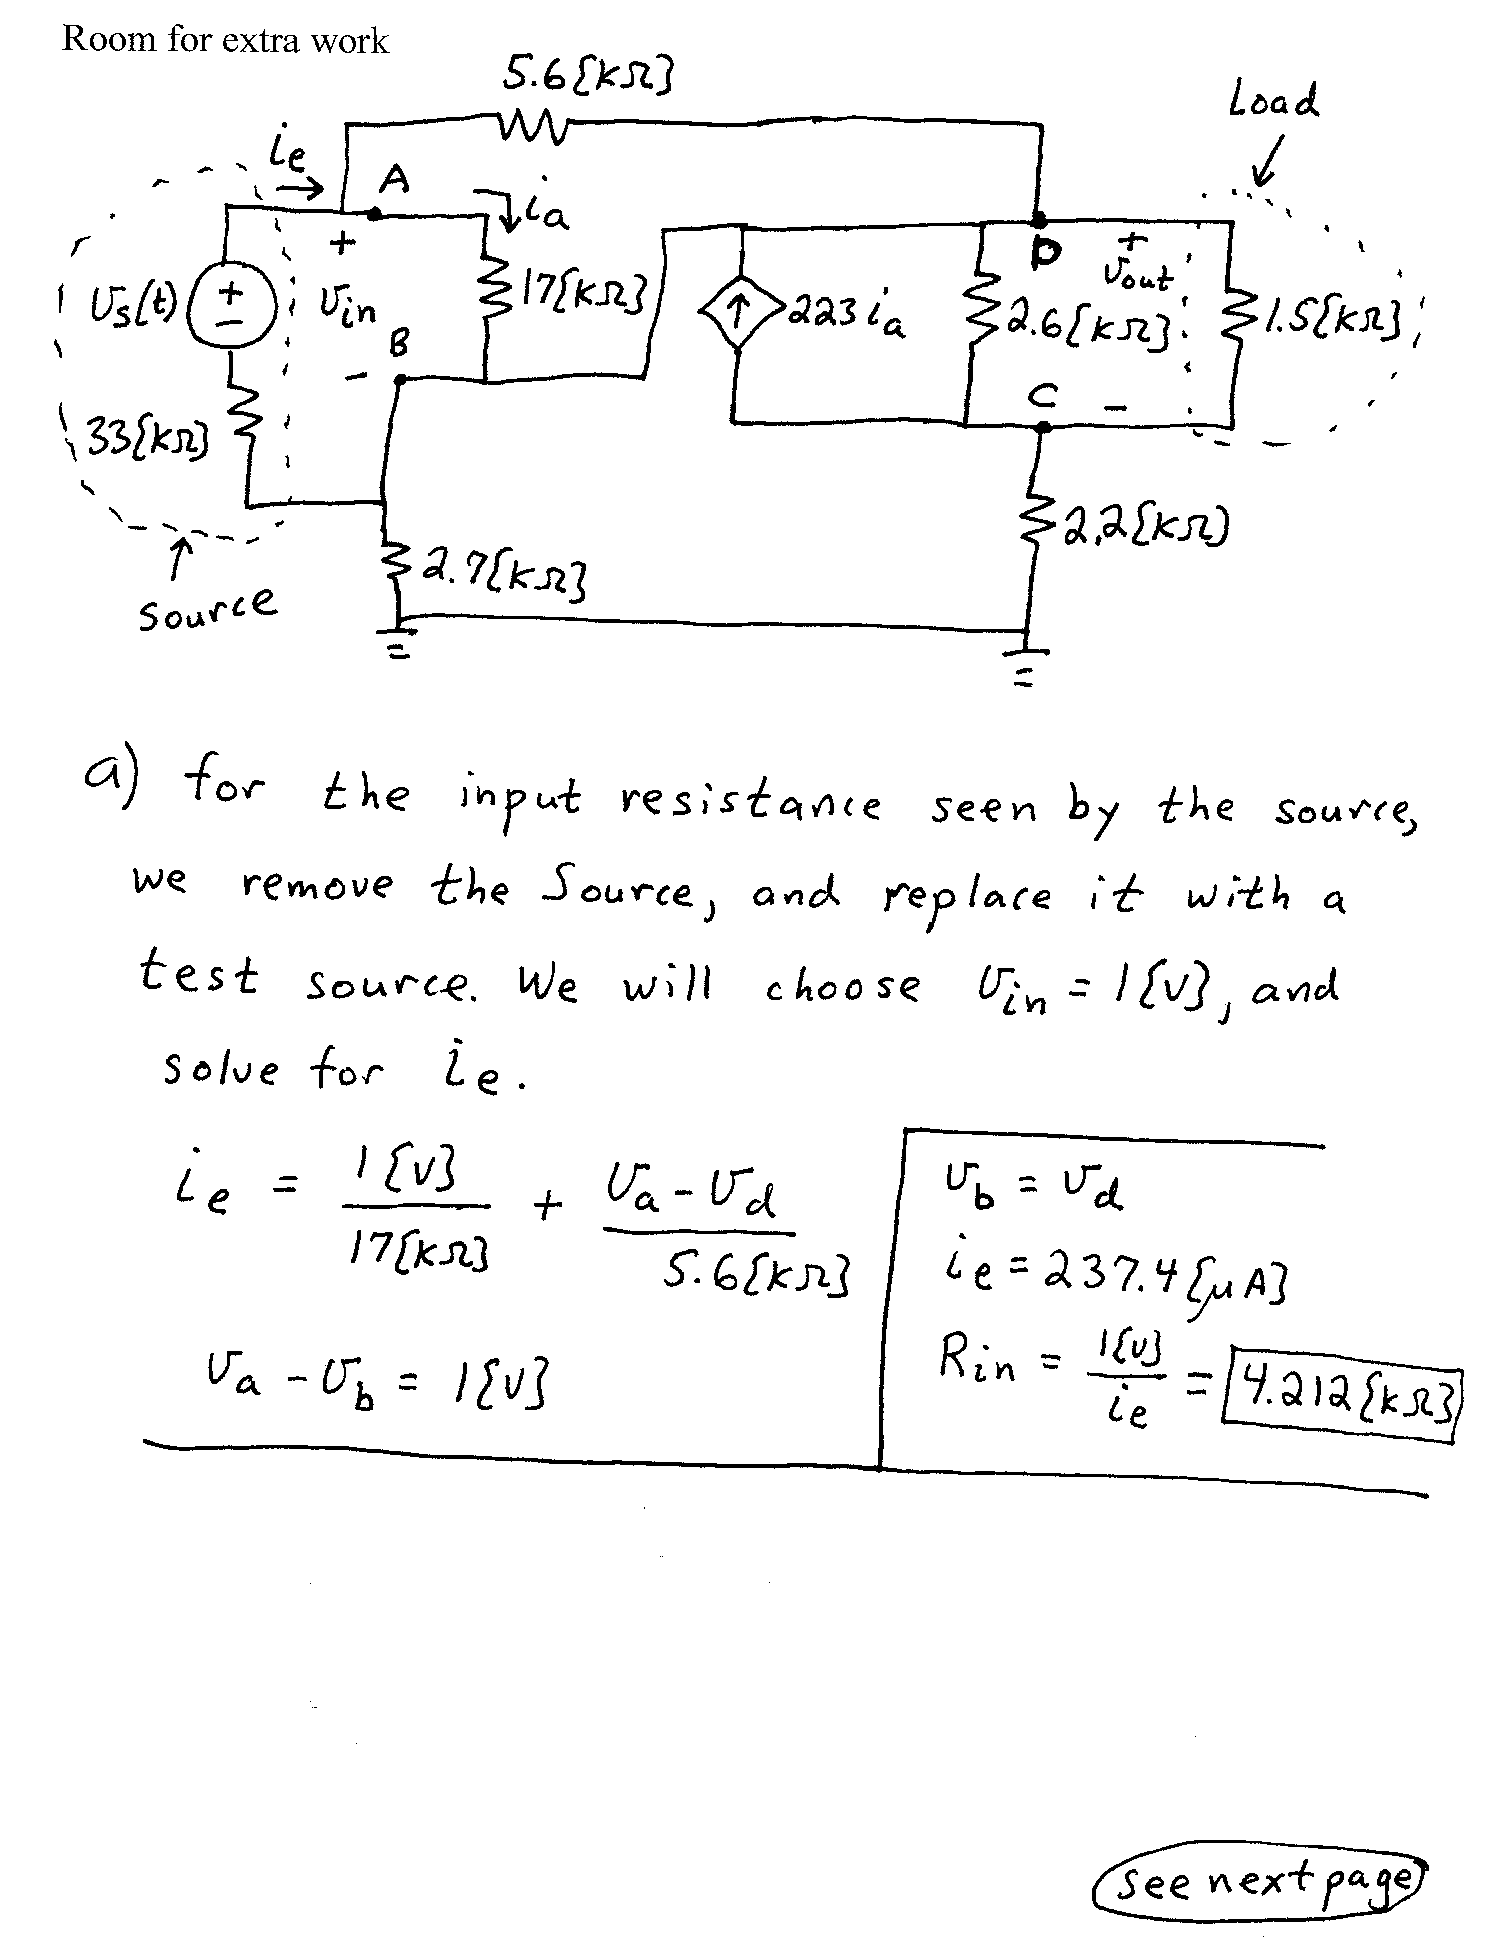 Room for extra work
5.6{kΩ}
Load
i_e
A
i_a
+
D
+
v_s(t)
+
-
v_in
17{kΩ}
223 i_a
2.6{kΩ}
v_out
1.5{kΩ}
B
-
C
-
33{kΩ}
2.2{kΩ}
2.7{kΩ}
Source
a) for the input resistance seen by the source,
we remove the Source, and replace it with a
test source. We will choose v_in = 1{v}, and
solve for i_e.
i_e = 1{v} / 17{kΩ} + v_a - v_d / 5.6{kΩ}
v_a - v_b = 1{v}
v_b = v_d
i_e = 237.4{μA}
R_in = 1{v} / i_e = 4.212{kΩ}
see next page